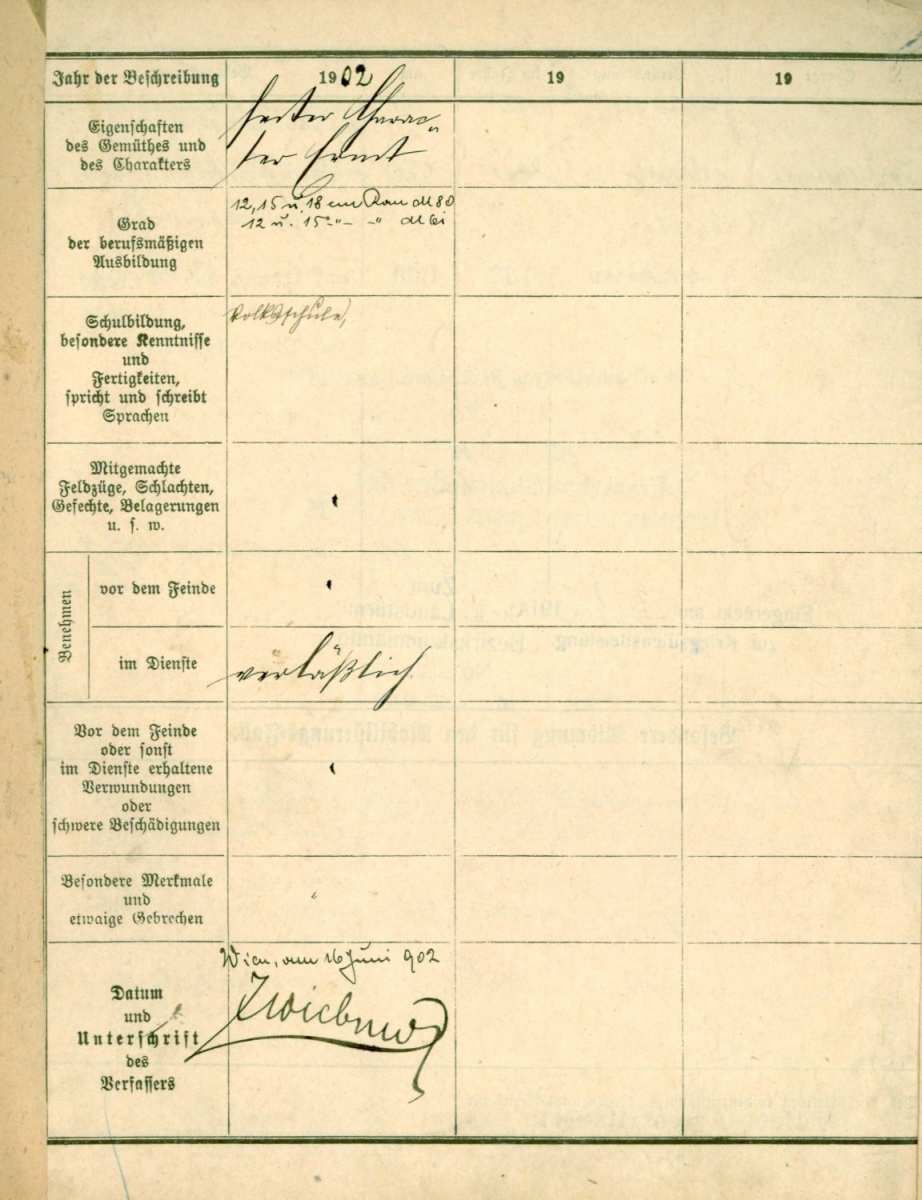 Jahr der Beschreibung
1902
19
19
Eigenschaften
des Gemüthes und
des Charakters
fester Charac=
ter Ernst
Grad
der berufsmäßigen
Ausbildung
12, 15 u. 18 cm Kan M 80
12 u. 15 -"- -"- M 61
Schulbildung,
besondere Kenntnisse
und
Fertigkeiten,
spricht und schreibt
Sprachen
Volksschule,
Mitgemachte
Feldzüge, Schlachten,
Gefechte, Belagerungen
u. s. w.
Benehmen
vor dem Feinde
im Dienste
verläßlich
Vor dem Feinde
oder sonst
im Dienste erhaltene
Verwundungen
oder
schwere Beschädigungen
Besondere Merkmale
und
etwaige Gebrechen
Datum
und
Unterschrift
des
Verfassers
Wien, am 16 Juni 902